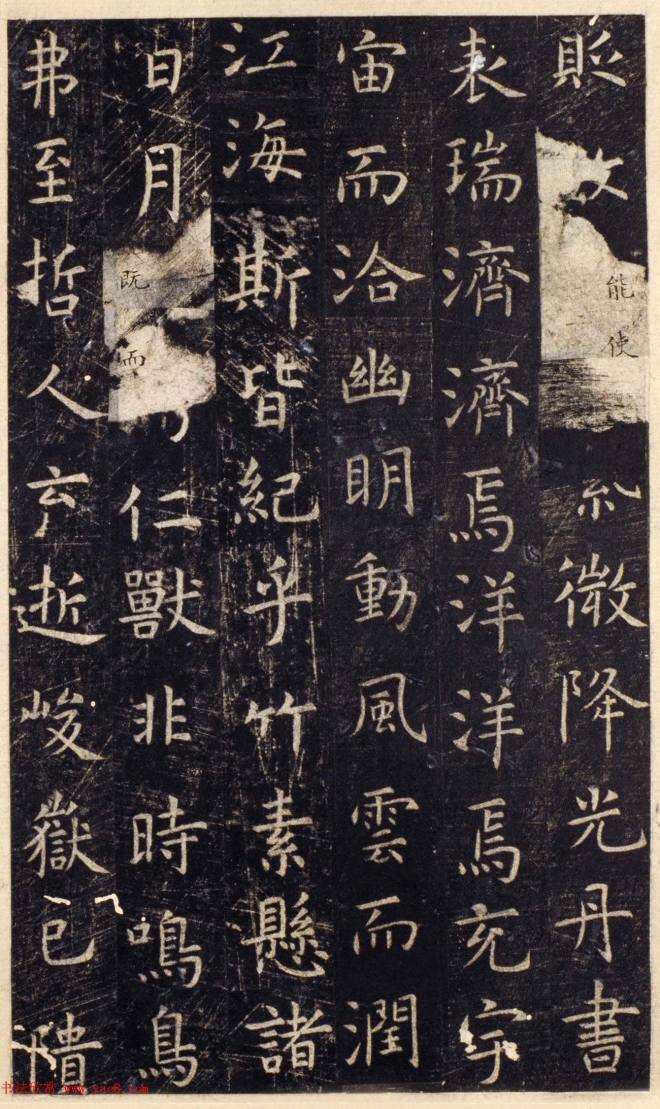 貶故能使紫微降光丹書
表瑞濟濟焉洋洋焉充宇
宙而洽幽明動風雲而潤
江海斯皆紀乎竹素懸諸
日月既而仁獸非時鳴鳥
弗至哲人云逝峻嶽已隤
书法欣赏 www.yac8.com